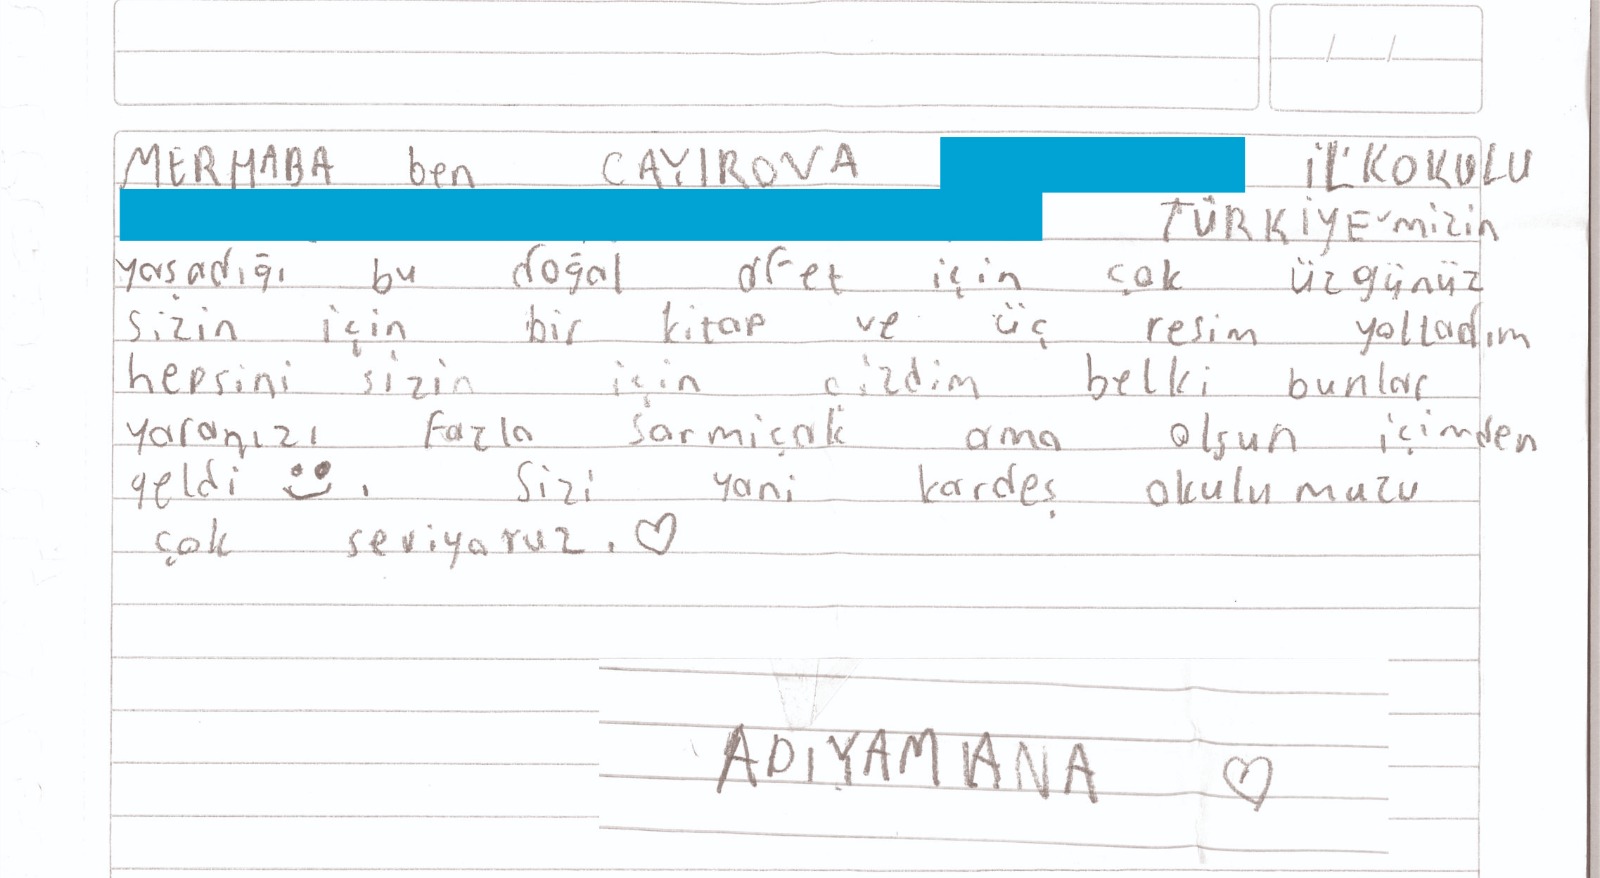 MERHABA ben CAYIROVA İLKOKULU
TÜRKİYE'mizin
yasadığı bu doğal afet için çok üzgünüz
sizin için bir kitap ve üç resim yolladım
hepsini sizin için çizdim belki bunlar
yaranızı fazla sarmiçak ama olsun içimden
geldi. Sizi yani kardeş okulumuzu
çok seviyoruz.
ADIYAMANA